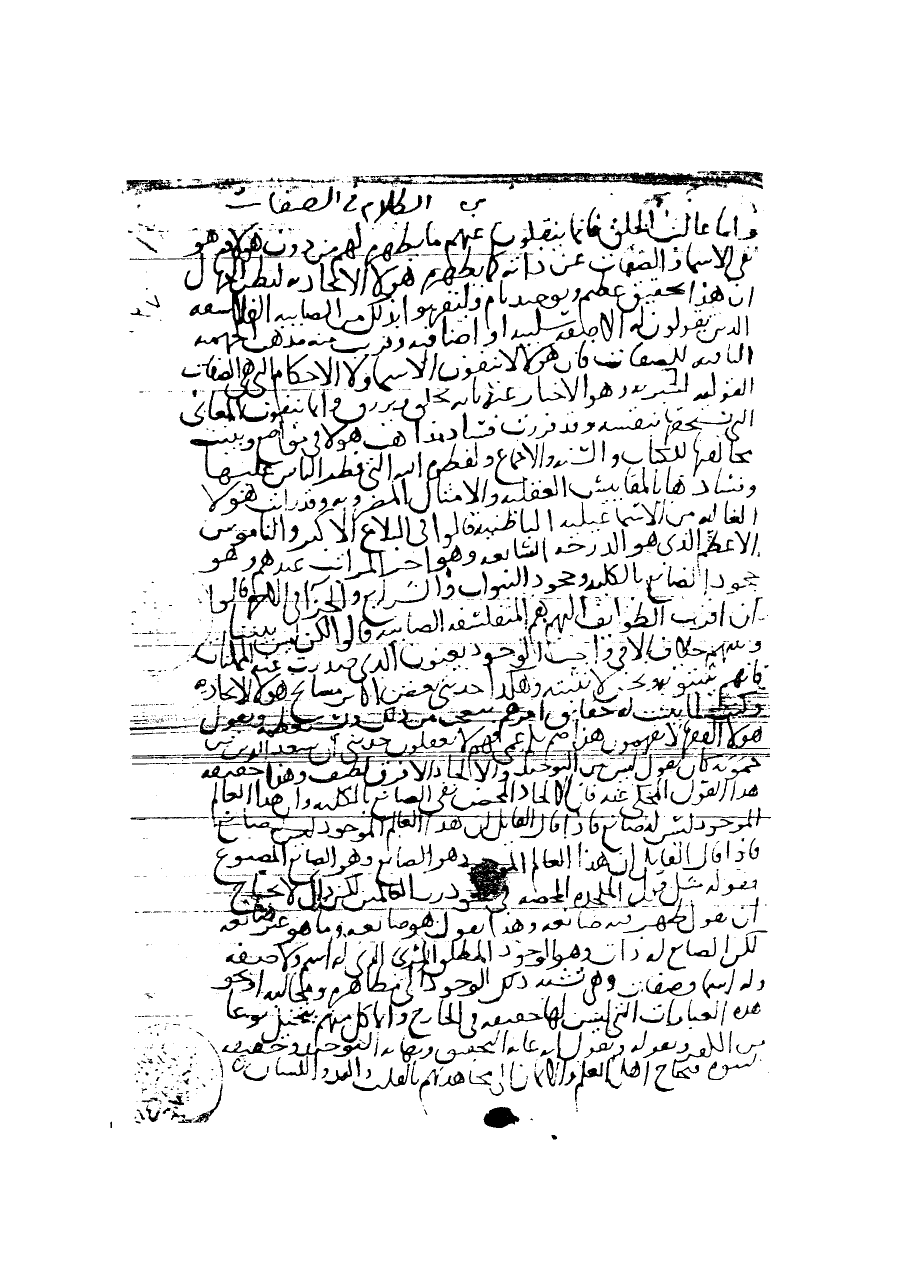 من الكلام في الصفات
واما غالب الخلق فانما ينقلون عنهم ما يظهرونه لهم من دون هولا وهو
نفي الاسما والصفات عن ذاته كما يظهره هولا الاتحاديه ليظن الجهال
ان هذا تحقيق عظيم وتوحيد تام وليتقربوا بذلك من الصابيه الفلاسفه
الذين يقولون له الا صفه سلبيه او اضافيه وقرب منه مذهب الجهميه
النافيه للصفات فان هولا لا ينفون الاسما ولا الاحكام التي هي الصفات
القوليه الخبريه وهو الاخبار عنه بانه يخلق ويرزق وانما ينفون المعاني
التي يستحقها بنفسه وقد قررت فساد مذاهب هولا في مواضع وبينت
مخالفتها للكتاب والسنه والاجماع ولفطره الله التي فطر الناس عليها
وفسادها بالمقاييس العقليه والامثال المضروبه وقد رايت هولا
الغاليه من الاسماعيليه الباطنيه قالوا في البلاغ الاكبر والناموس
الاعظم الذي هو الدرجه السابعه وهو اخر المراتب عندهم وهو
جحود الصانع بالكليه وجحود النبوات والشرايع والجزا في الاخره قالوا
ان اقرب الطوايف اليهم هم المتفلسفه الصابيه قالوا لكن ليس بيننا
وبينهم خلاف الا في واجب الوجود يعنون الذي صدرت عنه الممكنات
فانهم يثبتونه ونحن لا نثبته وهكذا حدثني بعض اكابر مشايخ هولا الاتحاديه
وكنت لما بينت له حقايق امرهم يتعجب من ذلك ويستعظمه ويقول
هولا الفقها لا يفهمون هذا صم بكم عمي فهم لا يعقلون حدثني ان سعد الدين بن
حمويه كان يقول ليس بين التوحيد والالحاد الا فرق لطيف وهذا حقيقه
هذا القول المحكي عنه فان الالحاد المحض نفي الصانع بالكليه وان هذا العالم
الموجود ليس له صانع فاذا قال القايل ان هذا العالم الموجود ليس صانع
فاذا قال القايل ان هذا العالم الموجود هو الصانع وهو الصانع المصنوع
فقوله مثل قول الملحده المحضه في رب العالمين لكن ذاك لا يحتاج
ان يقول ظهر فيه صانعه وهذا يقول هو صانعه وما هو غير صانعه
لكن الصانع له ذات وهو الوجود المطلق الذي له اسم ولا صفه
وله اسما وصفات وهي نسبه ذلك الوجود الى مظاهره ومجاليه او نحو
هذه العبارات التي ليس لها حقيقه في الخارج وانما كل منهم يتخيل نوعا
من الكفر ويقوله ويقول انه غايه التحقيق ونهايه التوحيد وحقيقه
النبوه فيحتاج اهل العلم والايمان الى مجاهدتهم بالقلب واليد واللسان